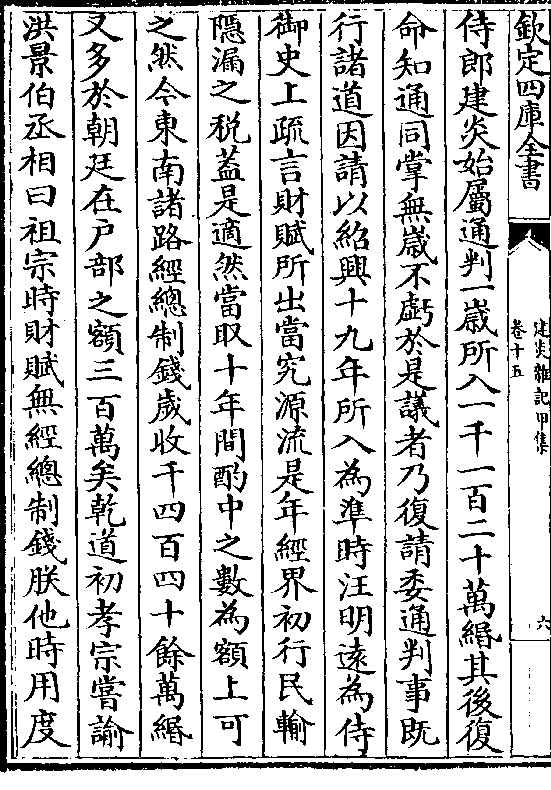 欽定四庫全書
建炎雜記甲集
卷十五
六
侍郎建炎始屬通判一歲所入一千一百二十萬緡其後復
命知通同掌無歲不虧於是議者乃復請委通判事既
行諸道因請以紹興十九年所入為準時汪明遠為侍
御史上疏言財賦所出當究源流是年經界初行民輸
隱漏之税蓋是適然當取十年間酌中之數為額上可
之然今東南諸路經總制錢歲收千四百四十餘萬緡
又多於朝廷在戸部之額三百萬矣乾道初孝宗嘗諭
洪景伯丞相曰祖宗時財賦無經總制錢朕他時用度